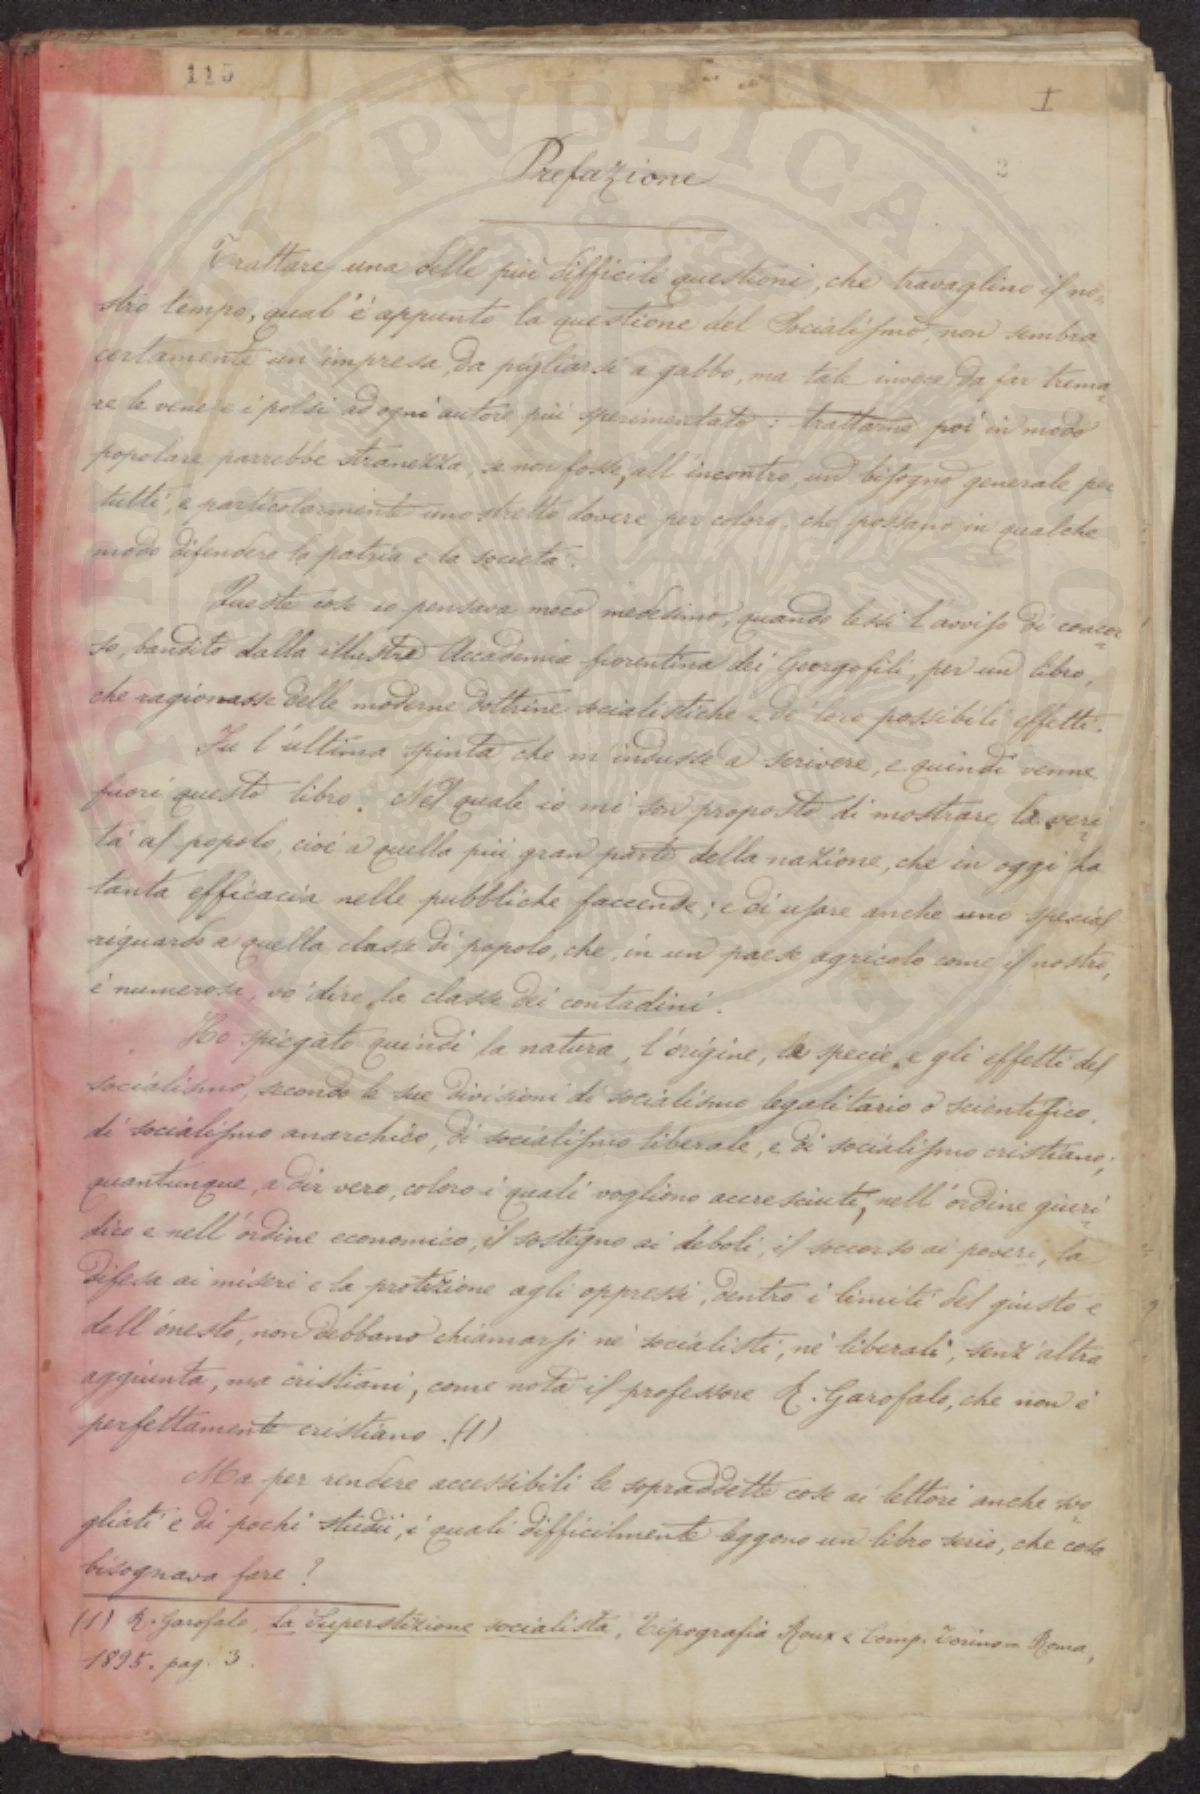 115
I
2
Prefazione
Trattare una delle più difficili questioni, che travaglino il no-
stro tempo, qual'è appunto la questione del Socialismo, non sembra
certamente un'impresa da pigliarsi a gabbo, ma tale invece da far trema-
re le vene e i polsi ad ogni autore più sperimentato: trattarne poi in modo
popolare parrebbe stranezza, se non fosse, all'incontro, un bisogno generale per
tutti, e particolarmente uno stretto dovere per coloro, che possano in qualche
modo difendere la patria e la società.
Queste cose io pensava meco medesimo, quando lessi l'avviso di concor-
so, bandito dalla illustre Accademia fiorentina dei Georgofili, per un libro,
che ragionasse delle moderne dottrine socialistiche e de' loro possibili effetti.
Fu l'ultima spinta che m'indusse a scrivere, e quindi venne
fuori questo libro. Nel quale io mi son proposto di mostrare la veri-
tà al popolo, cioè a quella più gran parte della nazione, che in oggi ha
tanta efficacia nelle pubbliche faccende; e di usare anche uno special
riguardo a quella classe di popolo, che, in un paese agricolo come il nostro,
è numerosa, vo' dire, la classe dei contadini.
Ho spiegato quindi la natura, l'origine, le specie e gli effetti del
socialismo, secondo le sue divisioni di socialismo legalitario o scientifico,
di socialismo anarchico, di socialismo liberale, e di socialismo cristiano;
quantunque, a dir vero, coloro i quali vogliono accresciute, nell'ordine giuri-
dico e nell'ordine economico, il sostegno ai deboli, il soccorso ai poveri, la
difesa ai miseri e la protezione agli oppressi, dentro i limiti del giusto e
dell'onesto, non debbano chiamarsi nè socialisti, nè liberali, senz'altra
aggiunta, ma cristiani, come nota il professore R. Garofalo, che non è
perfettamente cristiano. (1)
Ma per rendere accessibili le sopraddette cose ai lettori anche svo-
gliati e di pochi studii, i quali difficilmente leggono un libro serio, che cosa
bisognava fare?
(1) R. Garofalo, La Superstizione socialista, Tipografia Roux e Comp. Torino-Roma,
1895. pag. 3.